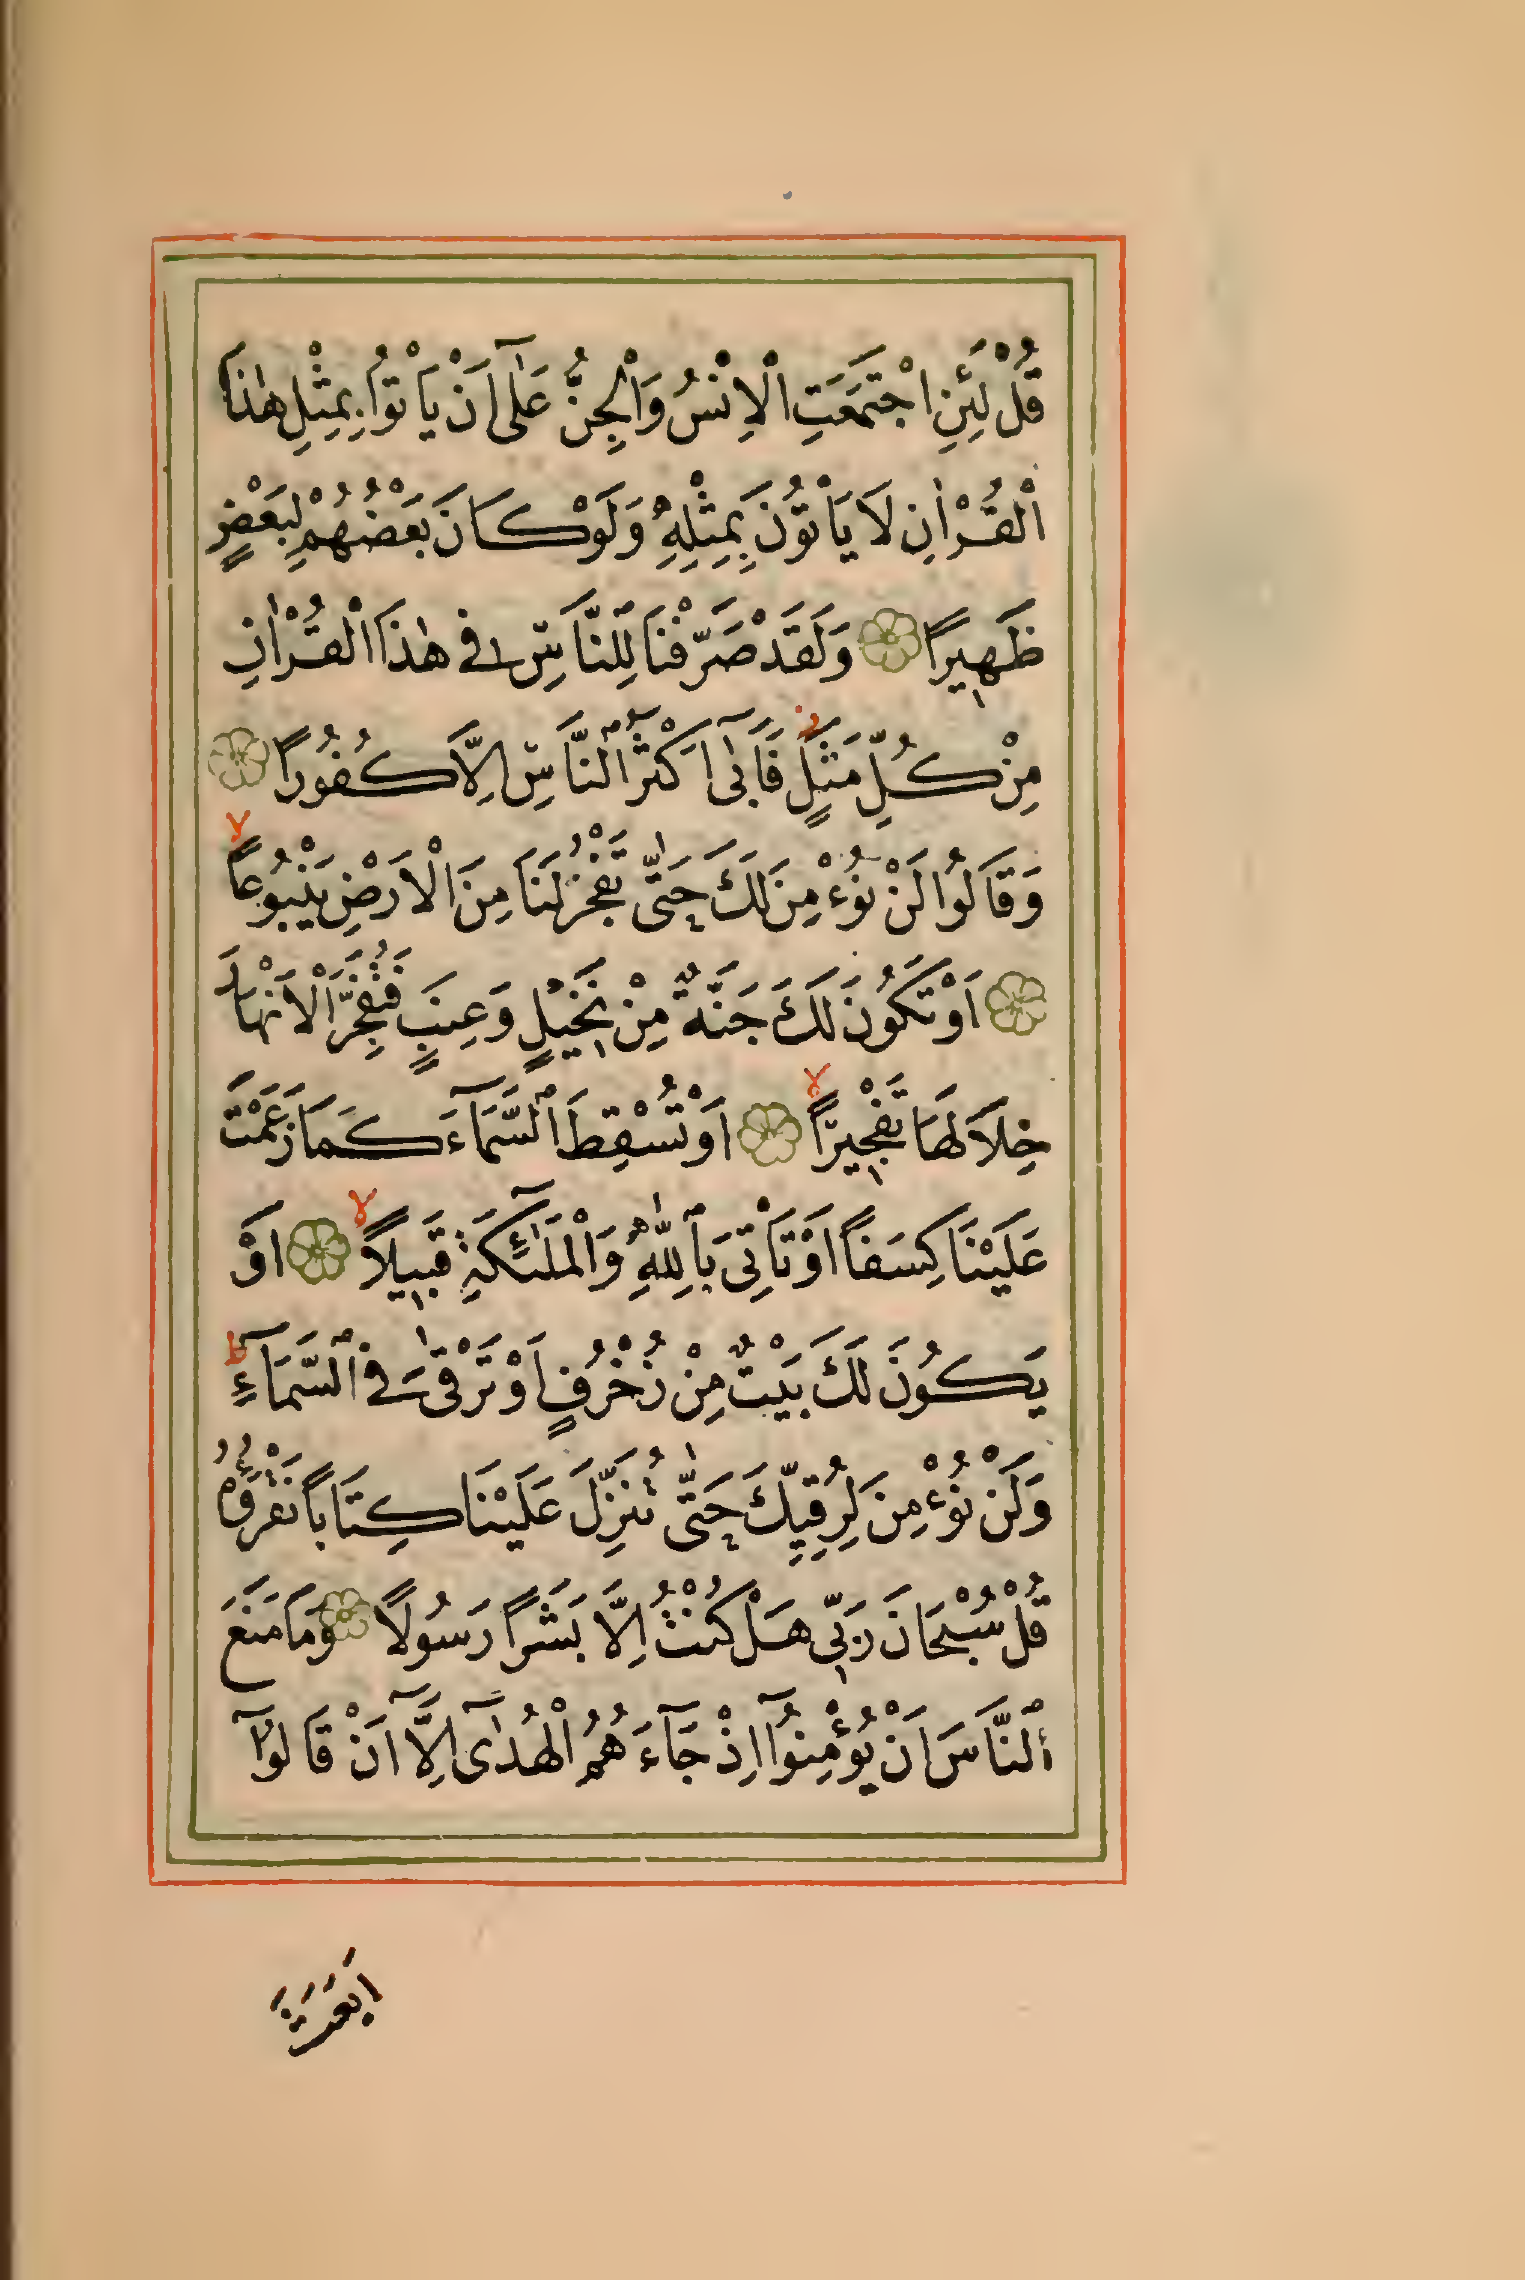 قُلْ لَئِنِ اجْتَمَعَتِ الْاِنْسُ وَالْجِنُّ عَلٰٓى اَنْ يَاْتُوا بِمِثْلِ هٰذَا
الْقُرْاٰنِ لَا يَاْتُوْنَ بِمِثْلِهِ وَلَوْ كَانَ بَعْضُهُمْ لِبَعْضٍ
ظَهِيرًا وَلَقَدْ صَرَّفْنَا لِلنَّاسِ فِى هٰذَا الْقُرْاٰنِ
مِنْ كُلِّ مَثَلٍ ز فَاَبٰٓى اَكْثَرُ النَّاسِ اِلَّا كُفُورًا
وَقَالُوا لَنْ نُؤْمِنَ لَكَ حَتّٰى تَفْجُرَ لَنَا مِنَ الْاَرْضِ يَنْبُوعًا لا
اَوْ تَكُونَ لَكَ جَنَّةٌ مِنْ نَخِيلٍ وَعِنَبٍ فَتُفَجِّرَ الْاَنْهَارَ
خِلَالَهَا تَفْجِيرًا لا اَوْ تُسْقِطَ السَّمَآءَ كَمَا زَعَمْتَ
عَلَيْنَا كِسَفًا اَوْ تَاْتِىَ بِاللّٰهِ وَالْمَلٰٓئِكَةِ قَبِيلًا لا اَوْ
يَكُونَ لَكَ بَيْتٌ مِنْ زُخْرُفٍ اَوْ تَرْقٰى فِى السَّمَآءِ ط
وَلَنْ نُؤْمِنَ لِرُقِيِّكَ حَتّٰى تُنَزِّلَ عَلَيْنَا كِتَابًا نَقْرَؤُهُ
قُلْ سُبْحَانَ رَبِّى هَلْ كُنْتُ اِلَّا بَشَرًا رَسُولًا وَمَا مَنَعَ
النَّاسَ اَنْ يُؤْمِنُوٓا اِذْ جَآءَهُمُ الْهُدٰٓى اِلَّٓا اَنْ قَالُوٓا
اَبَعَثَ